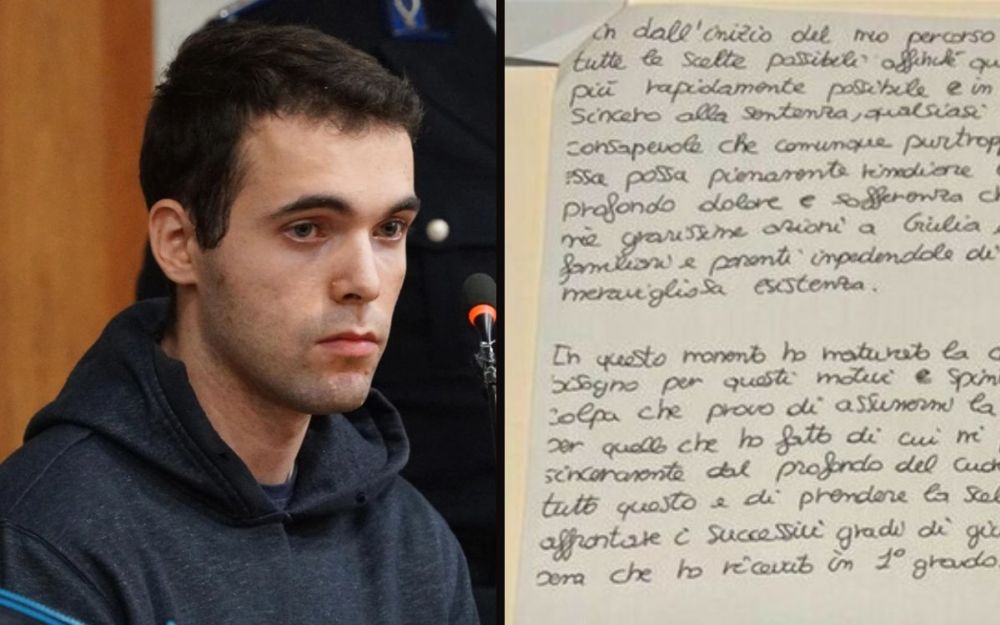 in dall'inizio del mio percorso
tutte le scelte possibili affinché qu
più rapidamente possibile e in
sincero alla sentenza, qualsiasi
consapevole che comunque purtropp
essa possa pienamente rimediare
profondo dolore e sofferenza ch
mie gravissime azioni a Giulia
familiari e parenti impedendole di
meravigliosa esistenza.
In questo momento ho maturato la
bisogno per questi motivi e spin
colpa che provo di assumermi la
per quello che ho fatto di cui mi
sinceramente dal profondo del cuor
tutto questo e di prendere la scel
affrontare i successivi gradi di giu
sera che ho ricevuto in 1° grado.